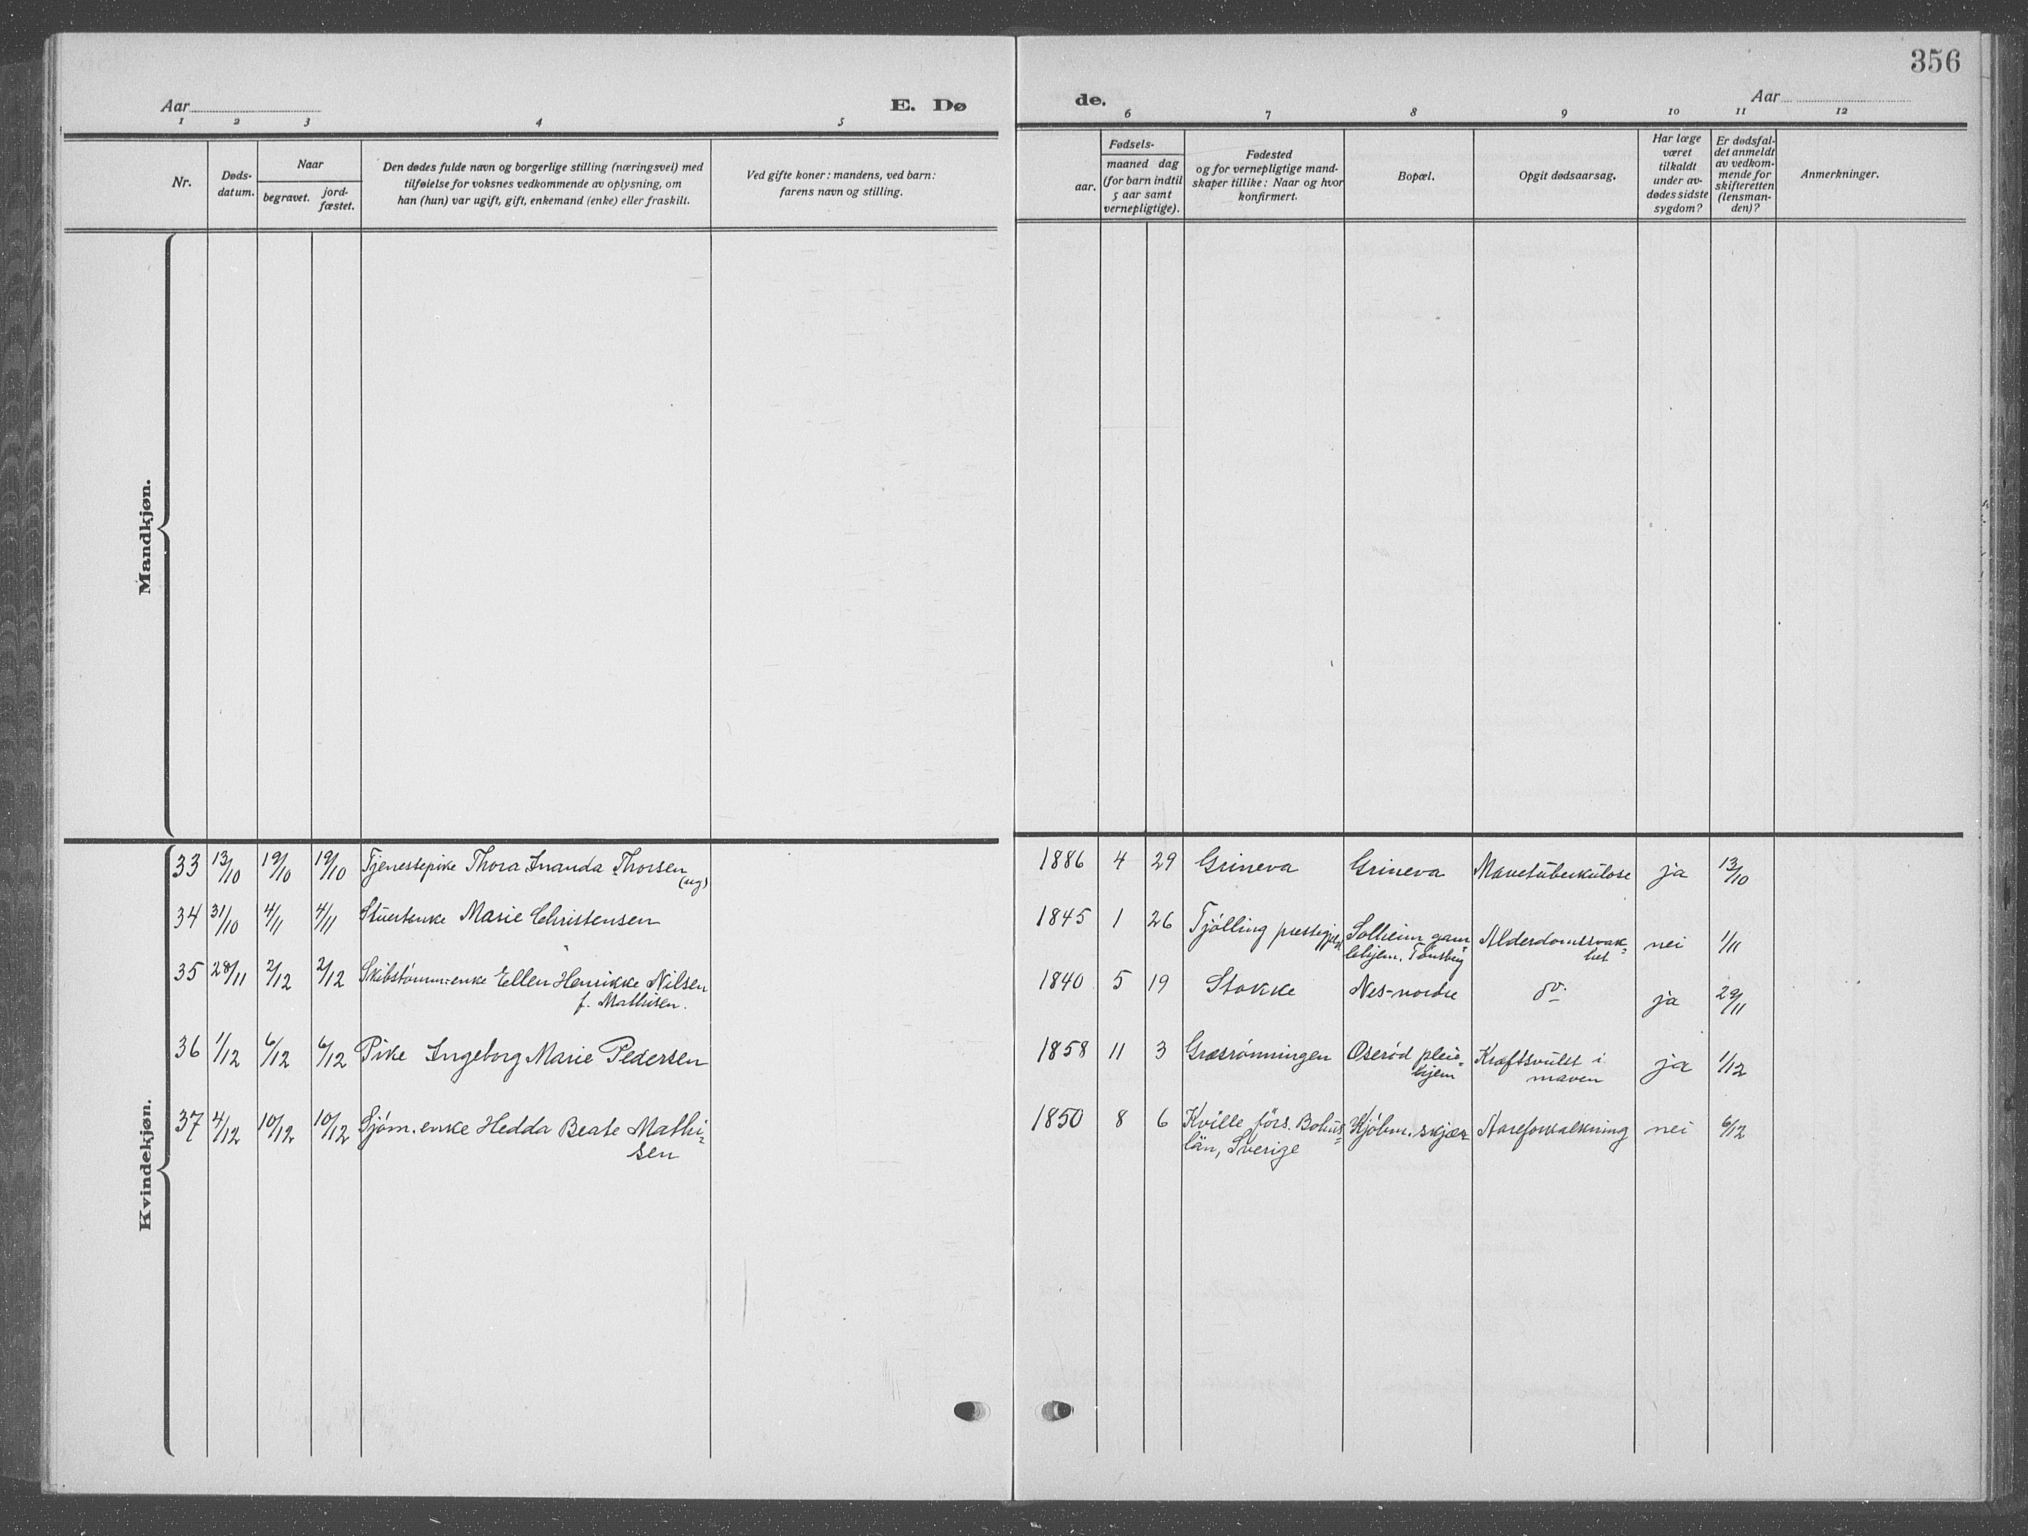 356
Aar
E. Dø
de.
Aar
1 2 3 4 5
6 7 8 9 10 11 12
Nr.
Døds-
datum.
Naar
begravet.
jord-
fæstet.
Den dødes fulde navn og borgerlige stilling (næringsvei) med
tilføielse for voksnes vedkommende av oplysning, om
han (hun) var ugift, gift, enkemand (enke) eller fraskilt.
Ved gifte koner: mandens, ved barn:
farens navn og stilling.
Fødsels-
aar.
maaned dag
(for barn indtil
5 aar samt
vernepligtige).
Fødested
og for vernepligtige mand-
skaper tillike: Naar og hvor
konfirmert.
Bopæl.
Opgit dødsaarsag.
Har læge
været
tilkaldt
under av-
dødes sidste
sygdom?
Er dødsfal-
det anmeldt
av vedkom-
mende for
skifteretten
(lensman-
den)?
Anmerkninger.
Mandkjøn.
Kvindekjøn.
33 13/10 19/10 19/10 Tjenestepike Thora Inanda Thorsen
(ug)
1886 4 29 Grineva Grineva Mavetuberkulose ja 13/10
34 31/10 4/11 4/11 Stuertenke Marie Christensen
1845 1 26 Tjølling prestegjeld Solheim gam
lehjem. Tønsberg
Alderdomssvak-
het
nei 1/11
35 28/11 2/12 2/12 Skibstømm:enke Ellen Henrikke Nilsen
f. Mathisen.
1840 5 19 Stokke Nes-nordre do. ja 29/11
36 1/12 6/12 6/12 Pike Ingeborg Marie Pedersen
1858 11 3 Græsrønningen Oserød pleie-
hjem
Kræftsvulst i
maven
ja 1/12
37 4/12 10/12 10/12 Sjøm.enke Hedda Beate Mathi-
sen
1850 8 6 Kville förs. Bohus-
län, Sverige
Kjøbm.skjær Aareforkalkning nei 6/12